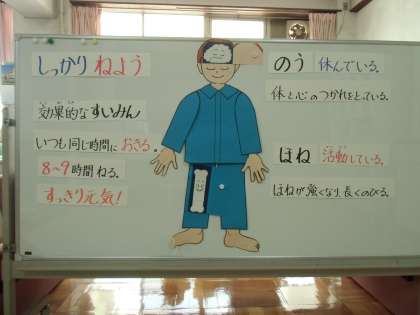 しっかり ねよう
効果的な すいみん
いつも同じ時間に おきる。
8～9時間 ねる。
すっきり元気!
のう 休んでいる。
体と心のつかれをとっている。
ほね 活動している。
ほねが強くなり長くのびる。